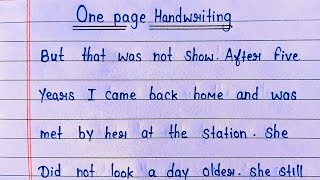 One page Handwriting
But that was not show. After five
Years I came back home and was
met by her at the station. She
Did not look a day older. she still